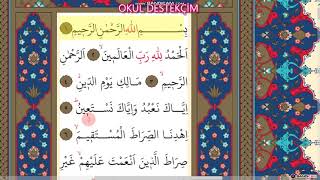 OKUL DESTEKÇİM
بِسْمِ اللّٰهِ الرَّحْمٰنِ الرَّحِيمِ ١
اَلْحَمْدُ لِلّٰهِ رَبِّ الْعَالَمِينَ ٢ اَلرَّحْمٰنِ
الرَّحِيمِ ٣ مَالِكِ يَوْمِ الدِّينِ ٤
اِيَّاكَ نَعْبُدُ وَاِيَّاكَ نَسْتَعِينُ ٥
اِهْدِنَا الصِّرَاطَ الْمُسْتَقِيمَ ٦
صِرَاطَ الَّذِينَ اَنْعَمْتَ عَلَيْهِمْ غَيْرِ